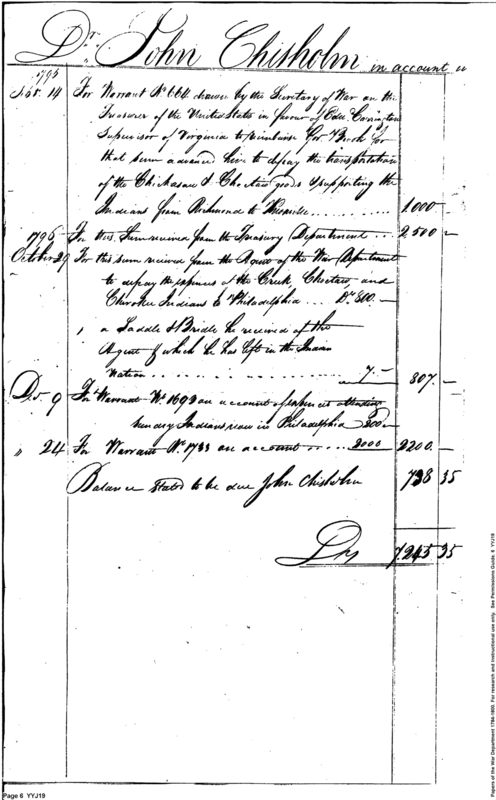 Dr. John Chisholm in account
1795
Feb. 14 For Warrant No. 664 drawn by the Secretary of War on the
Treasurer of the United States in favour of Edw. Carrington
Supervisor of Virginia to reimburse for
that sum advanced him to defray the transportation
of the Chickasaw & Choctaw goods & supporting the
Indians from Richmond to Knoxville .......... 1.000
1796 For this Sum received from the Treasury Department .... 2.500 —
October 29 For this sum received from the of the War Department
to defray the expences of the Creek, Choctaw, and
Cherokee Indians to Philadelphia ... Drs. 800. —
" a Saddle & Bridle he received of the
Agent & which he has left in the Indian
Nation .................... 7. — 807. —
Dec. 9 For Warrant No. 1693 on account of expences attending
sundry Indians now in Philadelphia 200 —
" 24 For Warrant No. 1733 on account ..... 2000 2200. —
Balance stated to be due John Chisholm 738 35
Drs 7245 35
Page 6 YYJ19
Papers of the War Department 1784-1800. For research and instructional use only. See Permissions Guide. 6 YYJ19